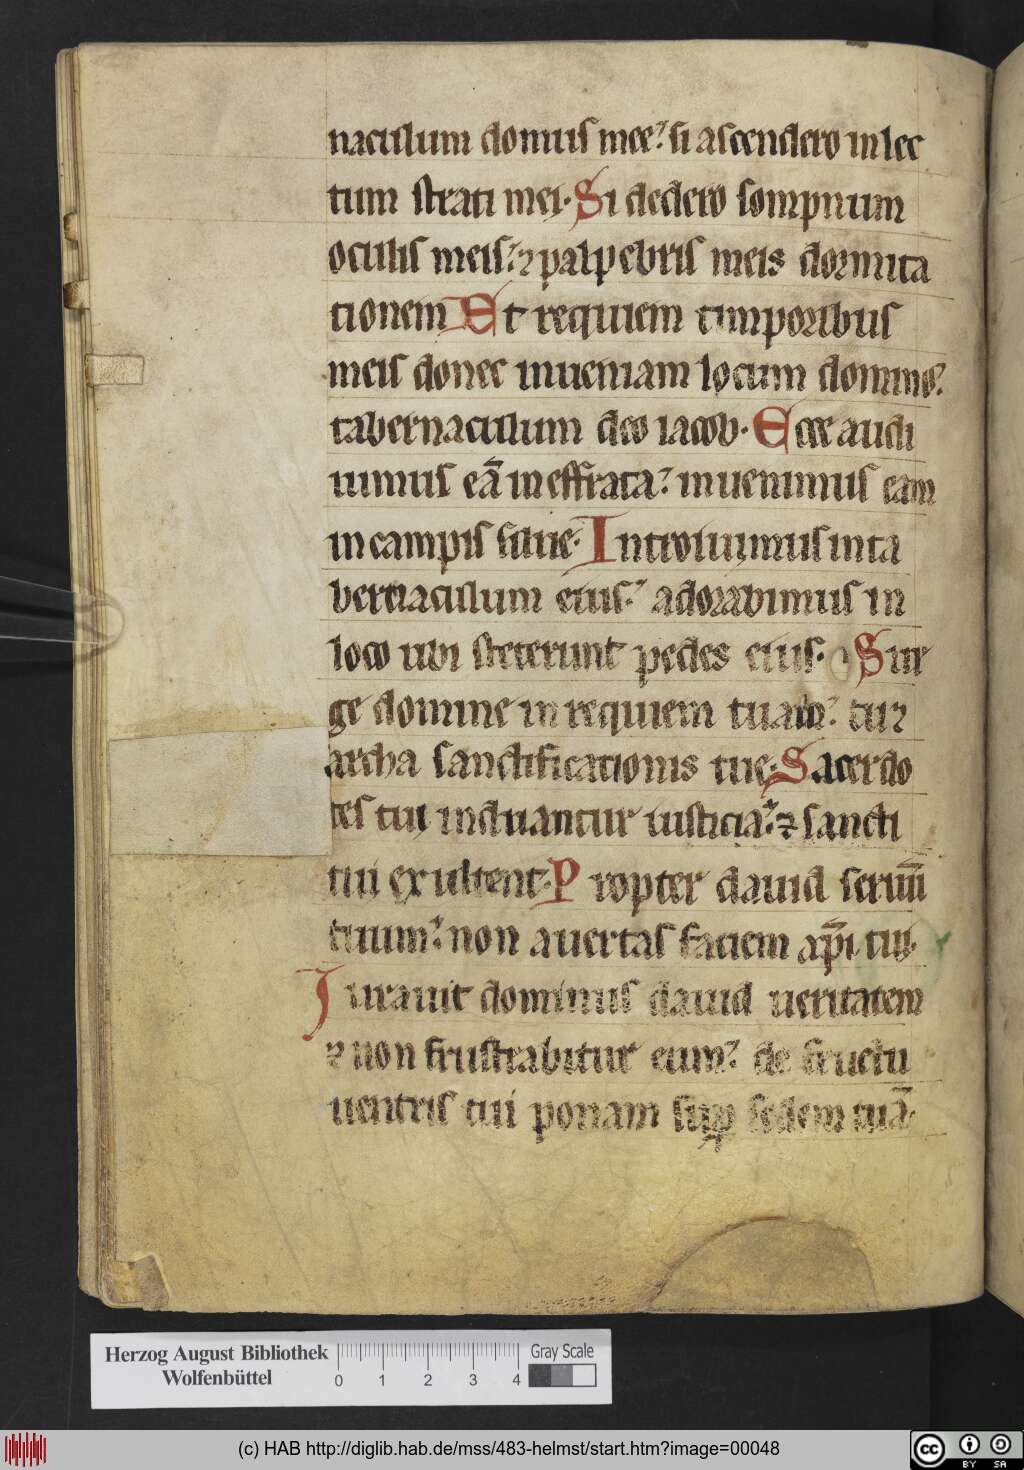 naculum domus mee. si ascendero in lec
tum strati mei. Si dedero sompnum
oculis meis. ⁊ palpebris meis dormita
tionem Et requiem timporibus
meis donec inueniam locum domino.
tabernaculum deo iacob. Ecce audi
uimus eā in effrata. inuenimus eam
in campis silue. Introiuimus in ta
bernaculum eius. adorabimus in
loco ubi steterunt pedes eius. Sur
ge domine in requiem tuam. tu ⁊
archa sanctificationis tue. Sacerdo
tes tui induantur iusticia. ⁊ sancti
tui exultent. Propter dauid seruū
tuum. non auertas faciem xp̄i tui.
Iurauit dominus dauid ueritatem
⁊ non frustrabitur eum. de fructu
uentris tui ponam sup̄ sedem tuā.
Herzog August Bibliothek
Wolfenbüttel
0 1 2 3 4
Gray Scale
(c) HAB http://diglib.hab.de/mss/483-helmst/start.htm?image=00048
cc BY SA